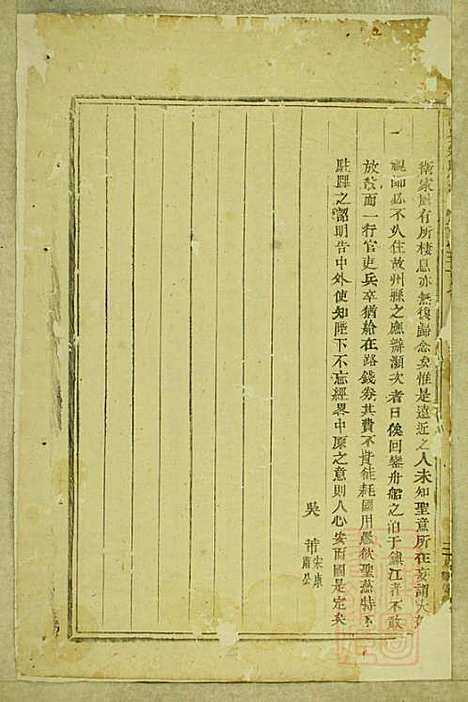 衛家屬有所棲息亦無復歸念矣惟是遠近之人未知聖意所在妄謂大
視師必不久住故州縣之應辦瀕次者日俟回鑾舟船之泊于鎮江者不敢
放散而一行官吏兵卒猶給在路錢券其費不貲徒耗國用愚欲聖慈特下
駐蹕之詔明告中外使知陛下不忘經畧中原之意則人心安而國是定矣
吳芾宋康肅公